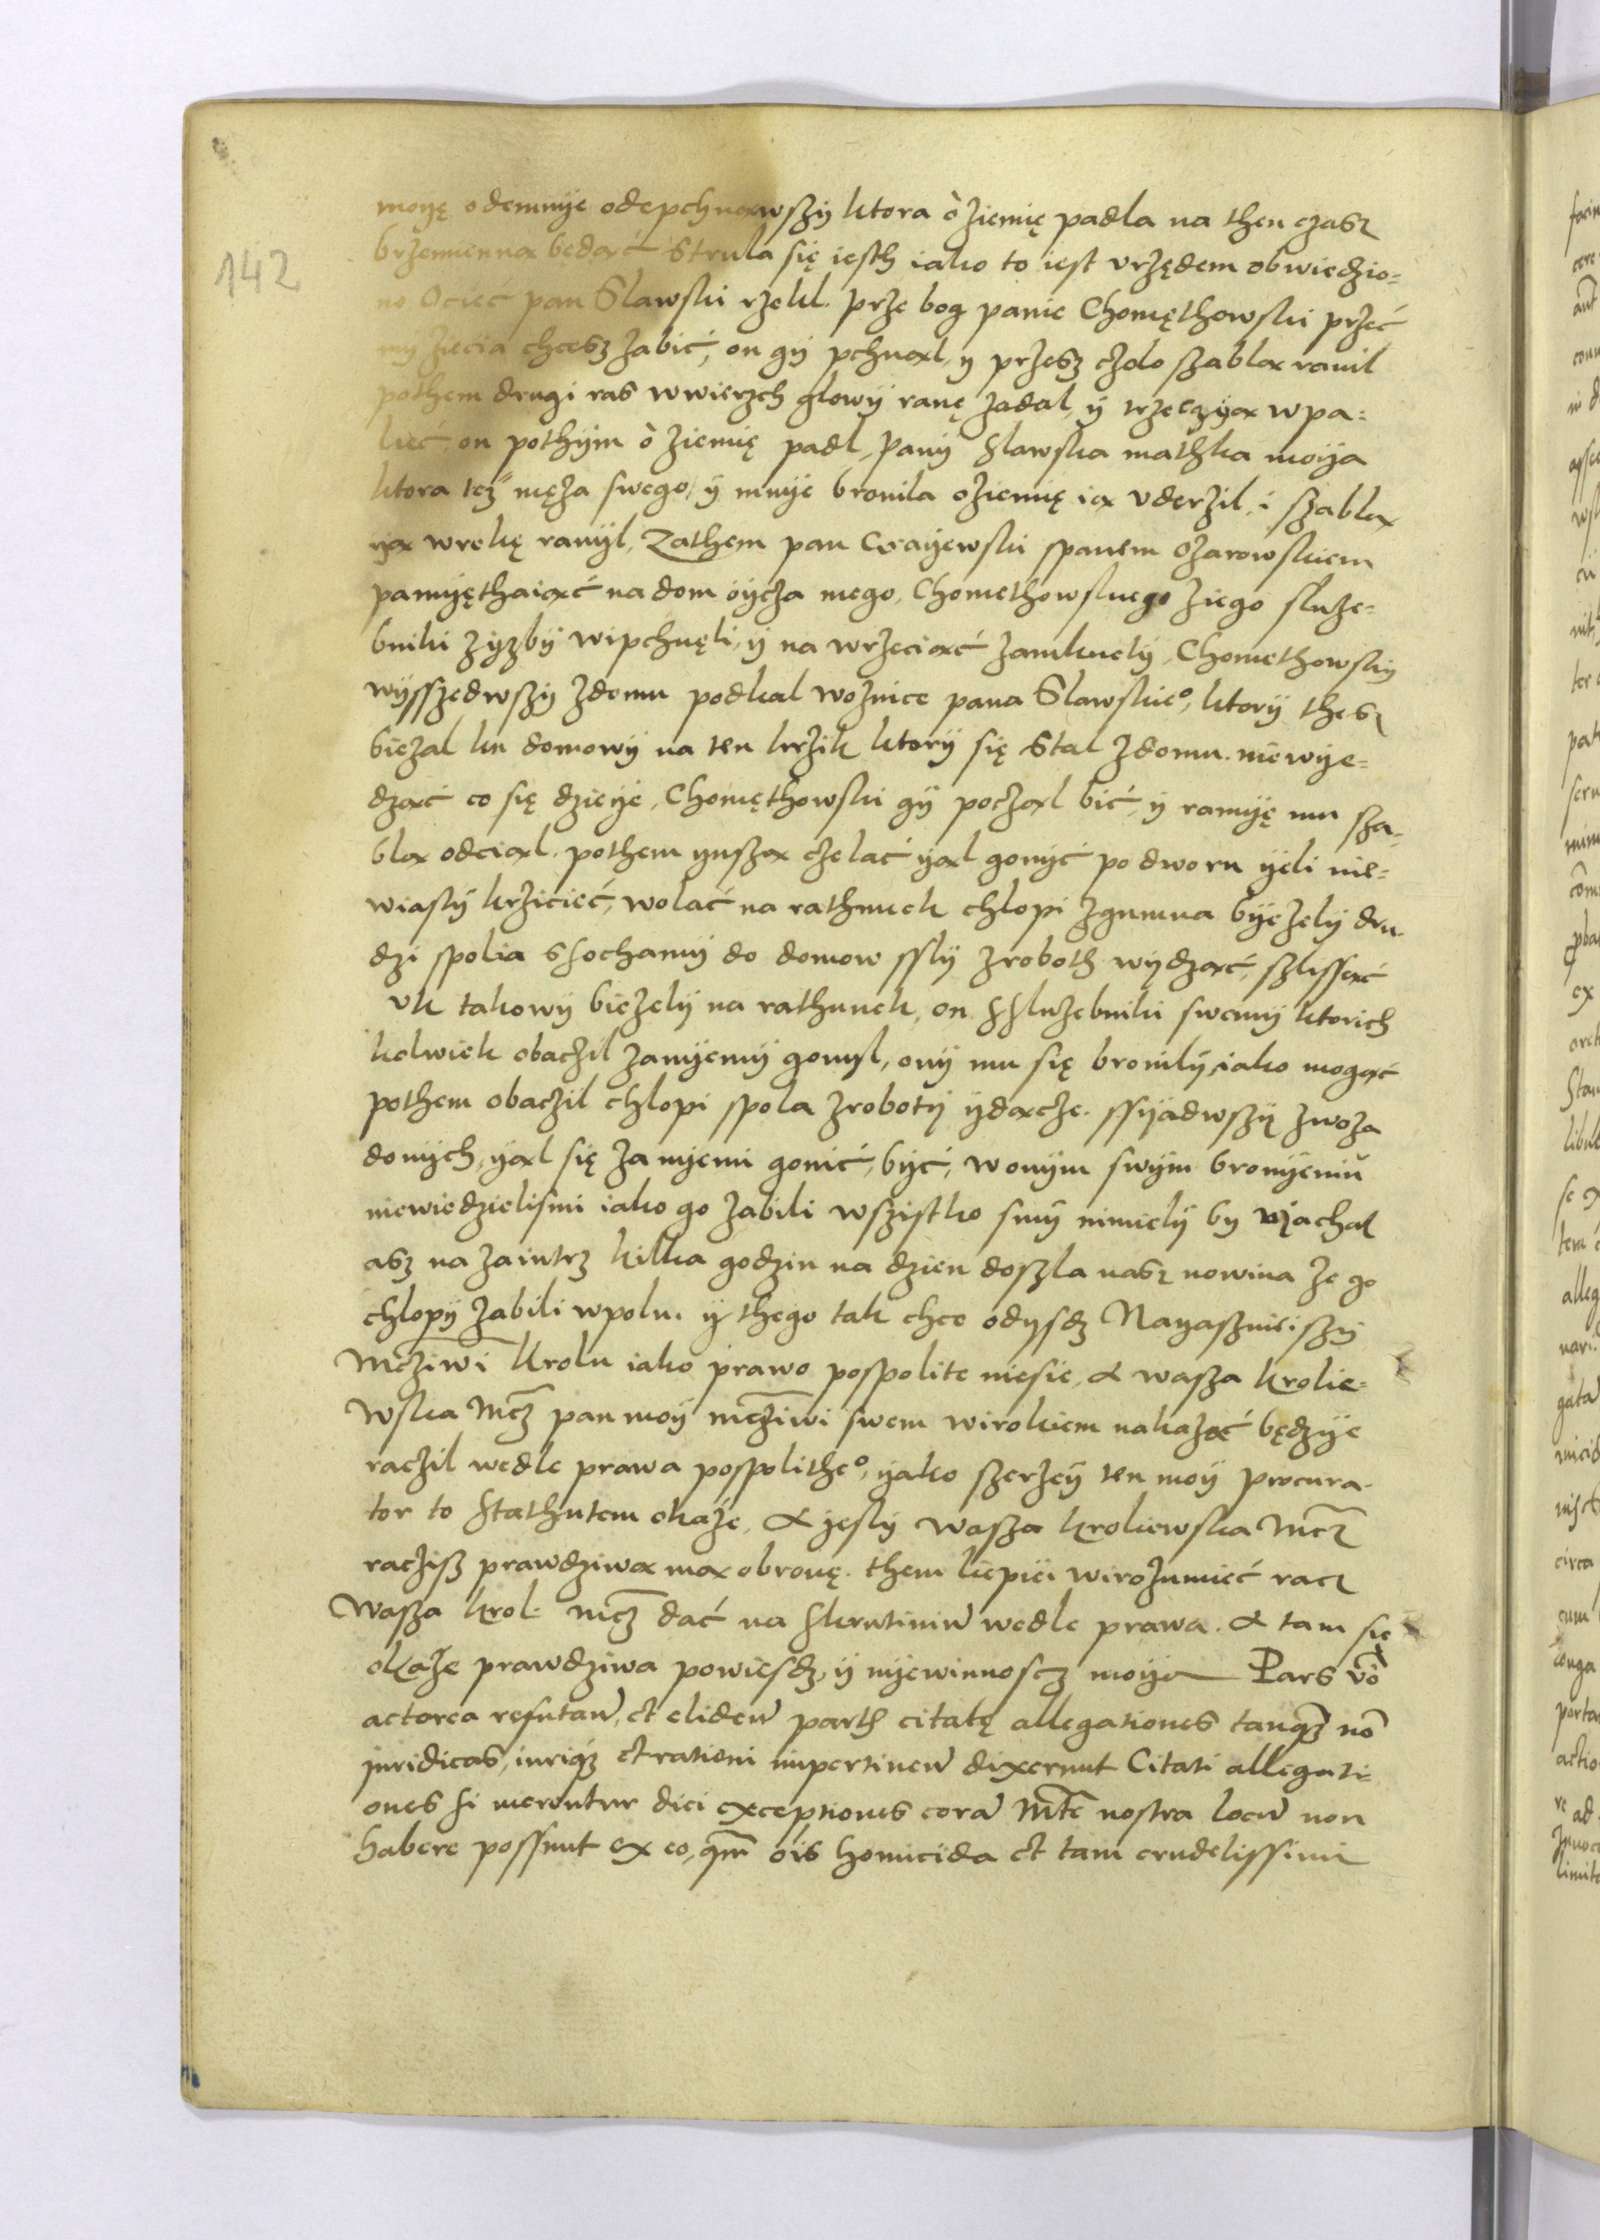 142
moyę odemnye odepchnąwszy ktora o ziemię padla na then czasz
brzemienna bedąć Strula się iesth iako to iest vrzędem obwiedzio-
no Ociec pan Slawski rzekl. prze bog panie Chomęthowski przeć
my ziecia chcesz zabić, on gy pchnąl, y przesz czolo szablą ranil
pothem drugi ras wwierzch glowy ranę zadal, y trzeczyą wpa-
lieć, on pothym o ziemię padl, Pany Slawska mathka moya
ktora tez męza swego, y mnye bronila oziemię ią vderzil, i szablą
yą wrekę ranyl, Zathem pan Crayewski spanem Ozarowskiem
pamyęthaiąć na dom oycza mego, Chomethowskiego ziego sluze-
bniki zyzby wipchnęli, y na wrzeciąć zamknely, Chomethowsky
wysszedwszy zdomu podkal woznice pana Slawskieº, ktory thesz
biezal ku domowy na ten krzik ktory się Stal zdomu. niewye-
dząć co się dzieye, Chomęthowski gy począl bić, y ramyę mu sza-
blą odciąl, pothem ynszą czelać yąl gonyć po dworu yeli nie-
wiasty krziciec, wolać na rathunek chlopi zgumna byezely dru-
dzi spolia ssochamy do domow ssly zroboth wydząć, szlissąć
vk takowy biezely na rathunek, on Ssluzebniki swemy ktorich
kolwiek obaczil zanyemy gonyl, ony mu się bronily, iako mogąć
pothem obaczil chlopi spola zroboty ydącze. ssyadwszy zwoza
donych, yąl się za nyemi gonić, być, wonym swym bronyeniu
niewiedzielismi iako go zabili wszistko smy nimiely by vjachal
asz na zaiutrz kilka godzin na dzien doszla nasz nowina ze go
chlopy zabili wpolu. y thego tak chce odysdz Nayasznieiszy
Mczīwi Krolu iako prawo pospolite niesie, & wasza krolie-
wska Mcz pan moy mcziwi swem wirokiem nakazać będzye
raczil wedle prawa pospolitheº, yako szerzey ten moy procura-
tor to Stathutem okaze, & yesly wasza kroliewska Mcz
raczisz prawdziwą mą obronę. them liepiei wirozumieć racz
Wasza krol: Mcz dać na Skrutiniū wedle prawa. & tam się
okaze prawdziwa powiesdz, y nyewinnoscz moya Pars vō
actorea refutań, et elideń parth citatę allegationes tanqz nō
juridicas, iuriqz et rationi impertineń dixerunt Citati allegati-
ones si merentur dici exceptiones corā Mte nostra locū non
habere possunt ex eo, qm̄ ois homicida et tam crudelissimi